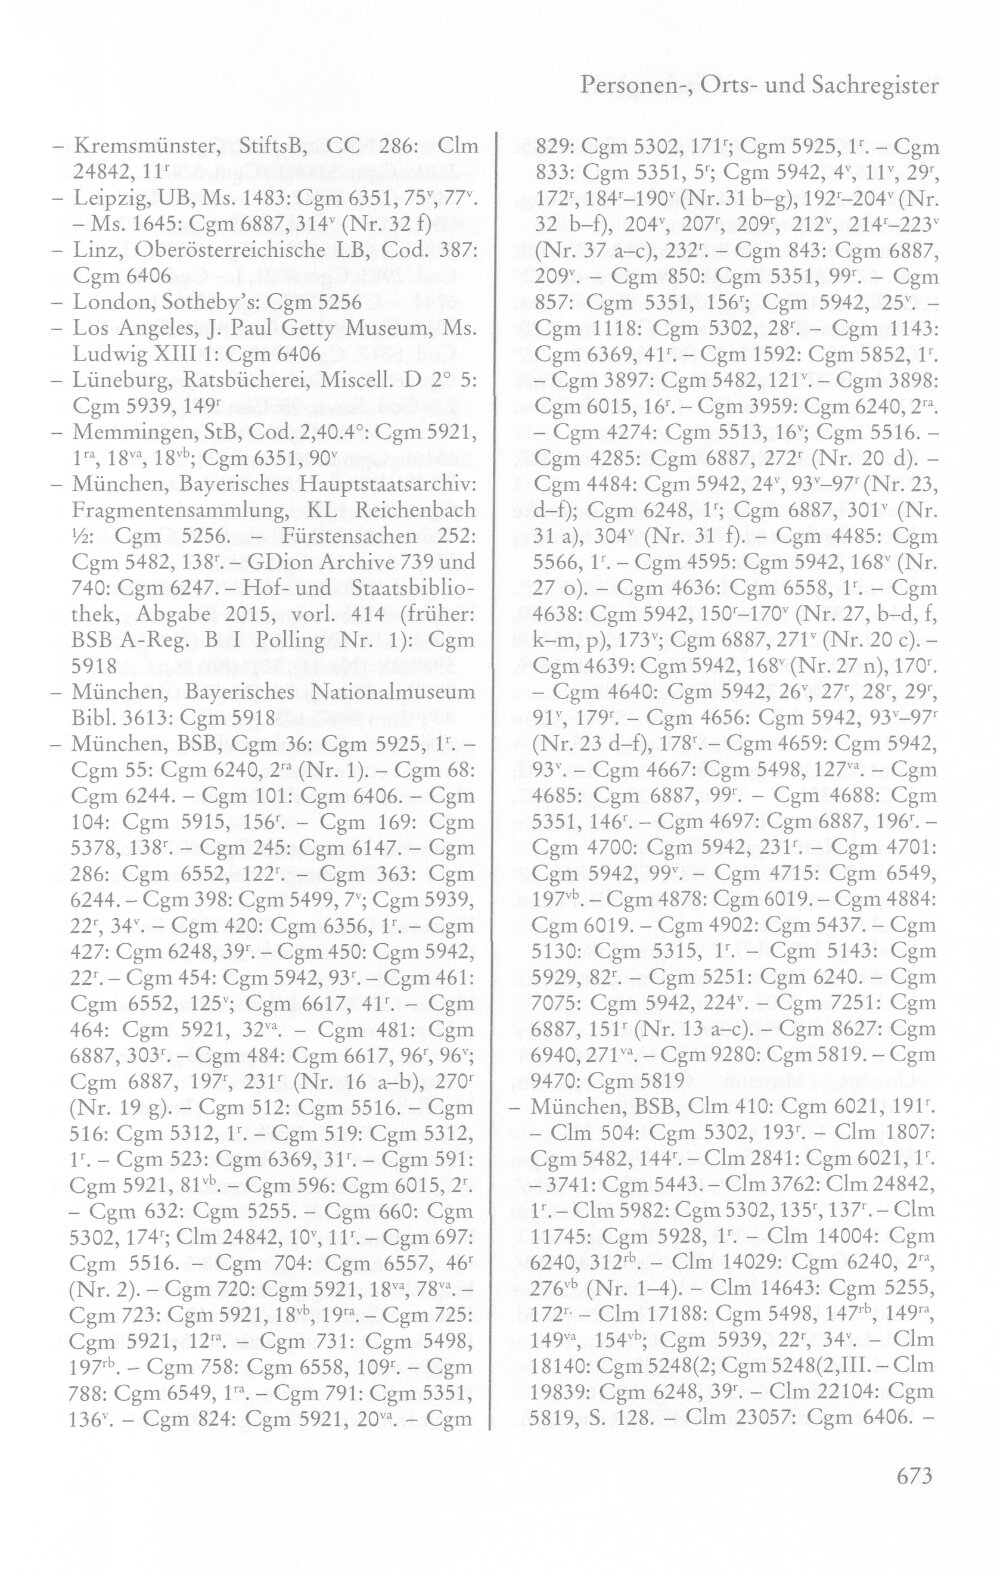 Personen-, Orts- und Sachregister
– Kremsmünster, StiftsB, CC 286: Clm
24842, 11ʳ
– Leipzig, UB, Ms. 1483: Cgm 6351, 75ᵛ, 77ᵛ.
– Ms. 1645: Cgm 6887, 314ᵛ (Nr. 32 f)
– Linz, Oberösterreichische LB, Cod. 387:
Cgm 6406
– London, Sotheby’s: Cgm 5256
– Los Angeles, J. Paul Getty Museum, Ms.
Ludwig XIII 1: Cgm 6406
– Lüneburg, Ratsbücherei, Miscell. D 2° 5:
Cgm 5939, 149ʳ
– Memmingen, StB, Cod. 2,40.4°: Cgm 5921,
1ʳᵃ, 18ᵛᵃ, 18ᵛᵇ; Cgm 6351, 90ᵛ
– München, Bayerisches Hauptstaatsarchiv:
Fragmentensammlung, KL Reichenbach
½: Cgm 5256. – Fürstensachen 252:
Cgm 5482, 138ʳ. – GDion Archive 739 und
740: Cgm 6247. – Hof- und Staatsbiblio-
thek, Abgabe 2015, vorl. 414 (früher:
BSB A-Reg. B I Polling Nr. 1): Cgm
5918
– München, Bayerisches Nationalmuseum
Bibl. 3613: Cgm 5918
– München, BSB, Cgm 36: Cgm 5925, 1ʳ. –
Cgm 55: Cgm 6240, 2ʳᵃ (Nr. 1). – Cgm 68:
Cgm 6244. – Cgm 101: Cgm 6406. – Cgm
104: Cgm 5915, 156ʳ. – Cgm 169: Cgm
5378, 138ʳ. – Cgm 245: Cgm 6147. – Cgm
286: Cgm 6552, 122ʳ. – Cgm 363: Cgm
6244. – Cgm 398: Cgm 5499, 7ᵛ; Cgm 5939,
22ʳ, 34ᵛ. – Cgm 420: Cgm 6356, 1ʳ. – Cgm
427: Cgm 6248, 39ʳ. – Cgm 450: Cgm 5942,
22ʳ. – Cgm 454: Cgm 5942, 93ʳ. – Cgm 461:
Cgm 6552, 125ᵛ; Cgm 6617, 41ʳ. – Cgm
464: Cgm 5921, 32ᵛᵃ. – Cgm 481: Cgm
6887, 303ʳ. – Cgm 484: Cgm 6617, 96ʳ, 96ᵛ;
Cgm 6887, 197ʳ, 231ʳ (Nr. 16 a–b), 270ʳ
(Nr. 19 g). – Cgm 512: Cgm 5516. – Cgm
516: Cgm 5312, 1ʳ. – Cgm 519: Cgm 5312,
1ʳ. – Cgm 523: Cgm 6369, 31ʳ. – Cgm 591:
Cgm 5921, 81ᵛᵇ. – Cgm 596: Cgm 6015, 2ʳ.
– Cgm 632: Cgm 5255. – Cgm 660: Cgm
5302, 174ʳ; Clm 24842, 10ᵛ, 11ʳ. – Cgm 697:
Cgm 5516. – Cgm 704: Cgm 6557, 46ʳ
(Nr. 2). – Cgm 720: Cgm 5921, 18ᵛᵃ, 78ᵛᵃ. –
Cgm 723: Cgm 5921, 18ᵛᵇ, 19ʳᵃ. – Cgm 725:
Cgm 5921, 12ʳᵃ. – Cgm 731: Cgm 5498,
197ʳᵇ. – Cgm 758: Cgm 6558, 109ʳ. – Cgm
788: Cgm 6549, 1ʳᵃ. – Cgm 791: Cgm 5351,
136ᵛ. – Cgm 824: Cgm 5921, 20ᵛᵃ. – Cgm
829: Cgm 5302, 171ʳ; Cgm 5925, 1ʳ. – Cgm
833: Cgm 5351, 5ʳ; Cgm 5942, 4ᵛ, 11ᵛ, 29ʳ,
172ʳ, 184ʳ–190ᵛ (Nr. 31 b–g), 192ʳ–204ᵛ (Nr.
32 b–f), 204ᵛ, 207ʳ, 209ʳ, 212ᵛ, 214ʳ–223ᵛ
(Nr. 37 a–c), 232ʳ. – Cgm 843: Cgm 6887,
209ᵛ. – Cgm 850: Cgm 5351, 99ʳ. – Cgm
857: Cgm 5351, 156ʳ; Cgm 5942, 25ᵛ. –
Cgm 1118: Cgm 5302, 28ʳ. – Cgm 1143:
Cgm 6369, 41ʳ. – Cgm 1592: Cgm 5852, 1ʳ.
– Cgm 3897: Cgm 5482, 121ᵛ. – Cgm 3898:
Cgm 6015, 16ʳ. – Cgm 3959: Cgm 6240, 2ʳᵃ.
– Cgm 4274: Cgm 5513, 16ᵛ; Cgm 5516. –
Cgm 4285: Cgm 6887, 272ʳ (Nr. 20 d). –
Cgm 4484: Cgm 5942, 24ᵛ, 93ᵛ–97ʳ (Nr. 23,
d–f); Cgm 6248, 1ʳ; Cgm 6887, 301ᵛ (Nr.
31 a), 304ᵛ (Nr. 31 f). – Cgm 4485: Cgm
5566, 1ʳ. – Cgm 4595: Cgm 5942, 168ᵛ (Nr.
27 o). – Cgm 4636: Cgm 6558, 1ʳ. – Cgm
4638: Cgm 5942, 150ʳ–170ᵛ (Nr. 27, b–d, f,
k–m, p), 173ᵛ; Cgm 6887, 271ᵛ (Nr. 20 c). –
Cgm 4639: Cgm 5942, 168ᵛ (Nr. 27 n), 170ʳ.
– Cgm 4640: Cgm 5942, 26ᵛ, 27ʳ, 28ʳ, 29ʳ,
91ᵛ, 179ʳ. – Cgm 4656: Cgm 5942, 93ᵛ–97ʳ
(Nr. 23 d–f), 178ʳ. – Cgm 4659: Cgm 5942,
93ᵛ. – Cgm 4667: Cgm 5498, 127ᵛᵃ. – Cgm
4685: Cgm 6887, 99ʳ. – Cgm 4688: Cgm
5351, 146ʳ. – Cgm 4697: Cgm 6887, 196ʳ. –
Cgm 4700: Cgm 5942, 231ʳ. – Cgm 4701:
Cgm 5942, 99ᵛ. – Cgm 4715: Cgm 6549,
197ᵛᵇ. – Cgm 4878: Cgm 6019. – Cgm 4884:
Cgm 6019. – Cgm 4902: Cgm 5437. – Cgm
5130: Cgm 5315, 1ʳ. – Cgm 5143: Cgm
5929, 82ʳ. – Cgm 5251: Cgm 6240. – Cgm
7075: Cgm 5942, 224ᵛ. – Cgm 7251: Cgm
6887, 151ʳ (Nr. 13 a–c). – Cgm 8627: Cgm
6940, 271ᵛᵃ. – Cgm 9280: Cgm 5819. – Cgm
9470: Cgm 5819
– München, BSB, Clm 410: Cgm 6021, 191ʳ.
– Clm 504: Cgm 5302, 193ʳ. – Clm 1807:
Cgm 5482, 144ʳ. – Clm 2841: Cgm 6021, 1ʳ.
– 3741: Cgm 5443. – Clm 3762: Clm 24842,
1ʳ. – Clm 5982: Cgm 5302, 135ʳ, 137ʳ. – Clm
11745: Cgm 5928, 1ʳ. – Clm 14004: Cgm
6240, 312ʳᵇ. – Clm 14029: Cgm 6240, 2ʳᵃ,
276ᵛᵇ (Nr. 1–4). – Clm 14643: Cgm 5255,
172ʳ· – Clm 17188: Cgm 5498, 147ʳᵇ, 149ʳᵃ,
149ᵛᵃ, 154ᵛᵇ; Cgm 5939, 22ʳ, 34ᵛ. – Clm
18140: Cgm 5248(2; Cgm 5248(2,III. – Clm
19839: Cgm 6248, 39ʳ. – Clm 22104: Cgm
5819, S. 128. – Clm 23057: Cgm 6406. –
673